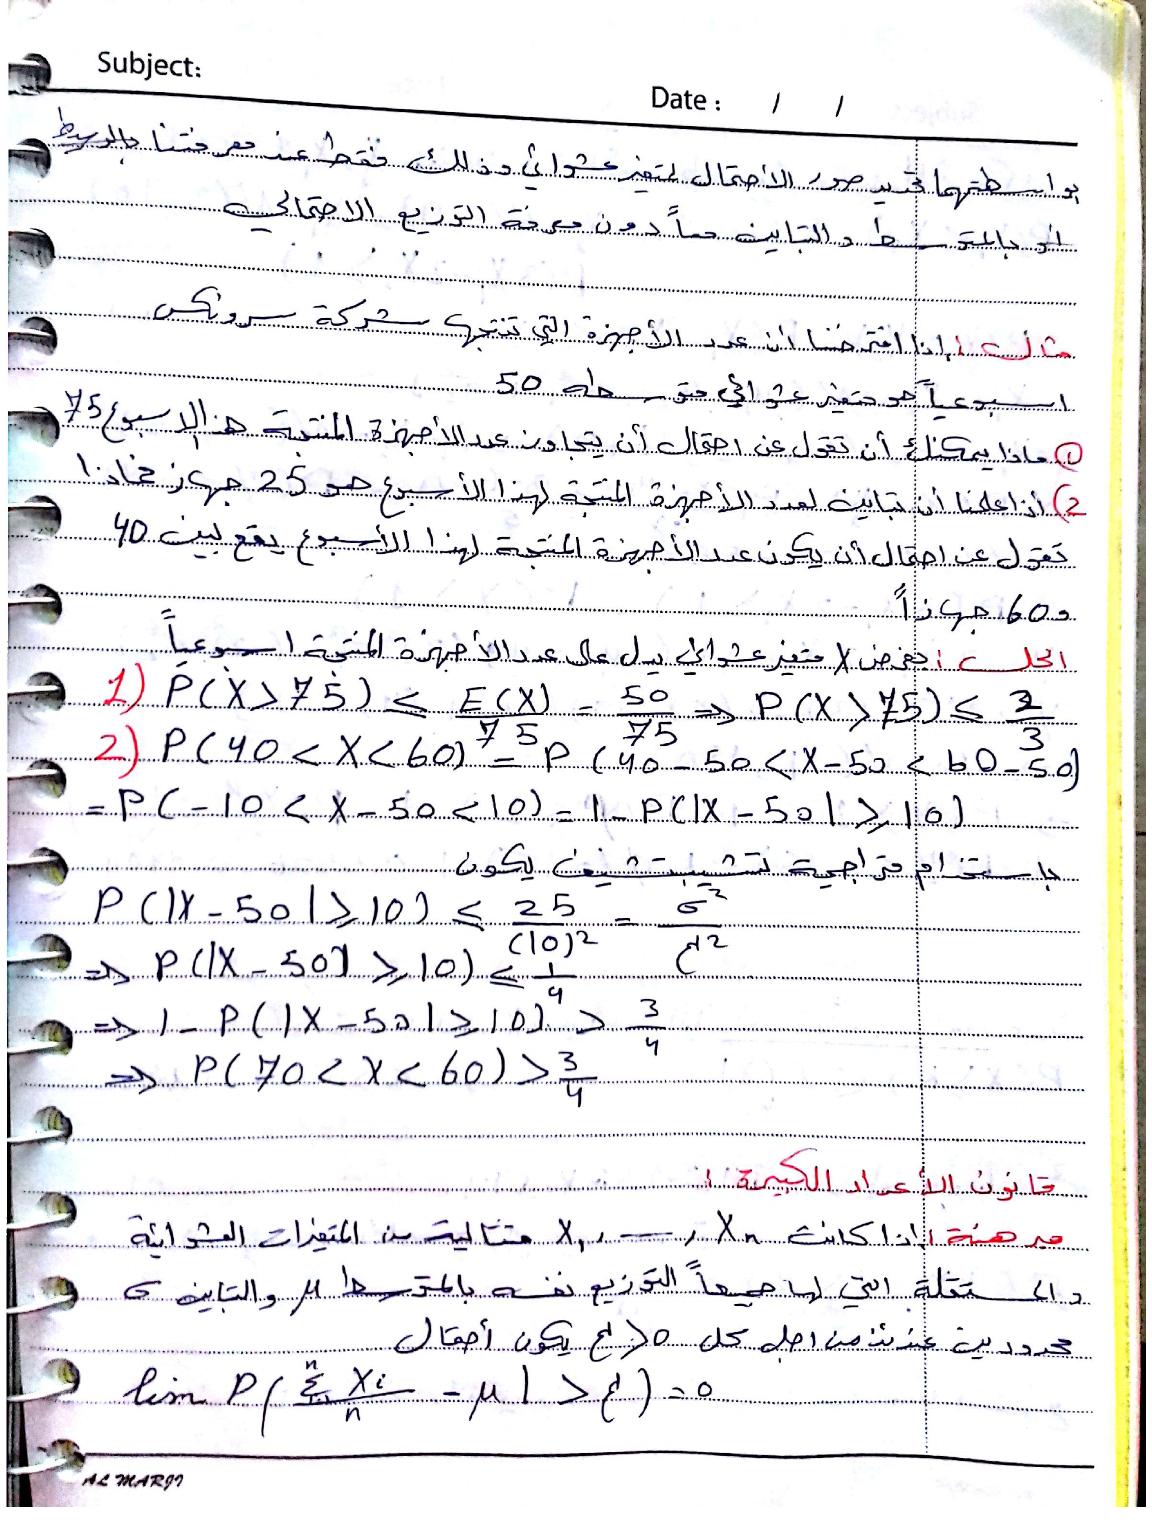 Subject:
Date : / /
بواسطتها تحديد صور الأحتمال لمتغير عشوائي وذلك فقط عند معرفتنا بالوسيط
أو بالمتوسط والتباين معاً دون معرفة التوزيع الاحتمالي
مثال : إذا افترضنا أن عدد الأجهزة التي تنتجها شركة سرونكس
اسبوعياً هو متغير عشوائي متوسطه 50
1) ماذا يمكنك أن تقول عن احتمال أن يتجاوز عدد الأجهزة المنتجة هذا الاسبوع 75
2) أذا علمنا أن تباين لعدد الأجهزة المنتجة لهذا الأسبوع هو 25 جهاز فماذا
تقول عن احتمال أن يكون عدد الأجهزة المنتجة لهذا الأسبوع يقع بين 40
و 60 جهازاً
الحل : نفرض X متغير عشوائي يدل على عدد الأجهزة المنتجة اسبوعياً
1) P(X > 75) ≤ E(X)/75 = 50/75 ⇒ P(X > 75) ≤ 2/3
2) P(40 < X < 60) = P(40 - 50 < X - 50 < 60 - 50)
= P(-10 < X - 50 < 10) = 1 - P(|X - 50| ≥ 10)
باستخدام متراجحة تشيبتشيف يكون
P(|X - 50| ≥ 10) ≤ 25/(10)² = σ²/ε²
⇒ P(|X - 50| ≥ 10) ≤ 1/4
⇒ 1 - P(|X - 50| ≥ 10) > 3/4
⇒ P(70 < X < 60) > 3/4
قانون الأعداد الكبيرة :
مبرهنة : إذا كانت X₁, ---, Xn متتالية من المتغيرات العشوائية
والمستقلة التي لها جميعاً التوزيع نفسه بالمتوسط μ والتباين σ
محدودين عندئذ من اجل كل ε > 0 يكون أحتمال
lim P( Σⁿ Xi / n - μ | > ε) = 0
AL MARJI